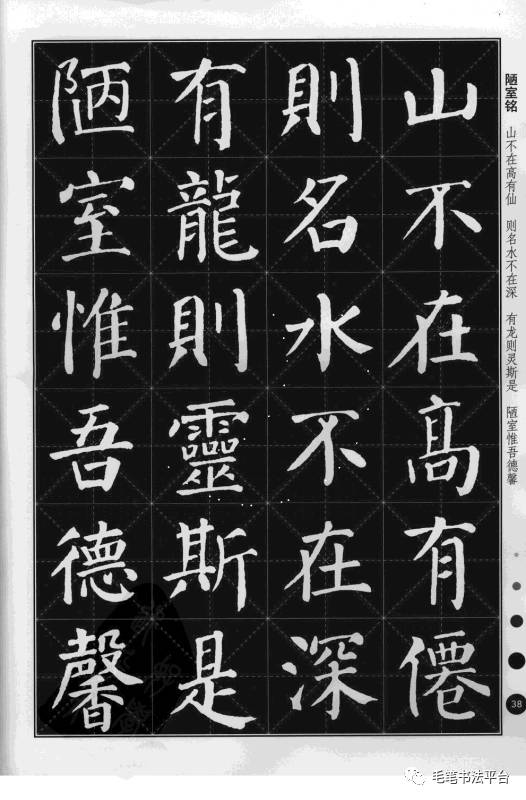 山不在高有僊
則名水不在深
有龍則靈斯是
陋室惟吾德馨
陋室铭
山不在高有仙 则名水不在深 有龙则灵斯是 陋室惟吾德馨
38
毛笔书法平台